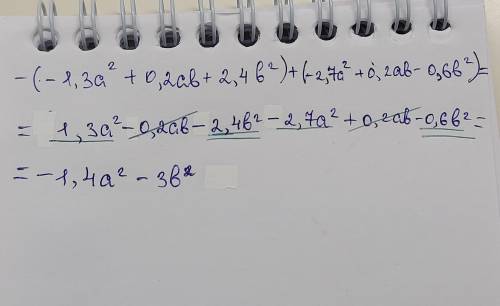 -(-1,3a² + 0,2ab + 2,4b²) + (-2,7a² + 0,2ab - 0,6b²) =
= 1,3a² - 0,2ab - 2,4b² - 2,7a² + 0,2ab - 0,6b² =
= -1,4a² - 3b²